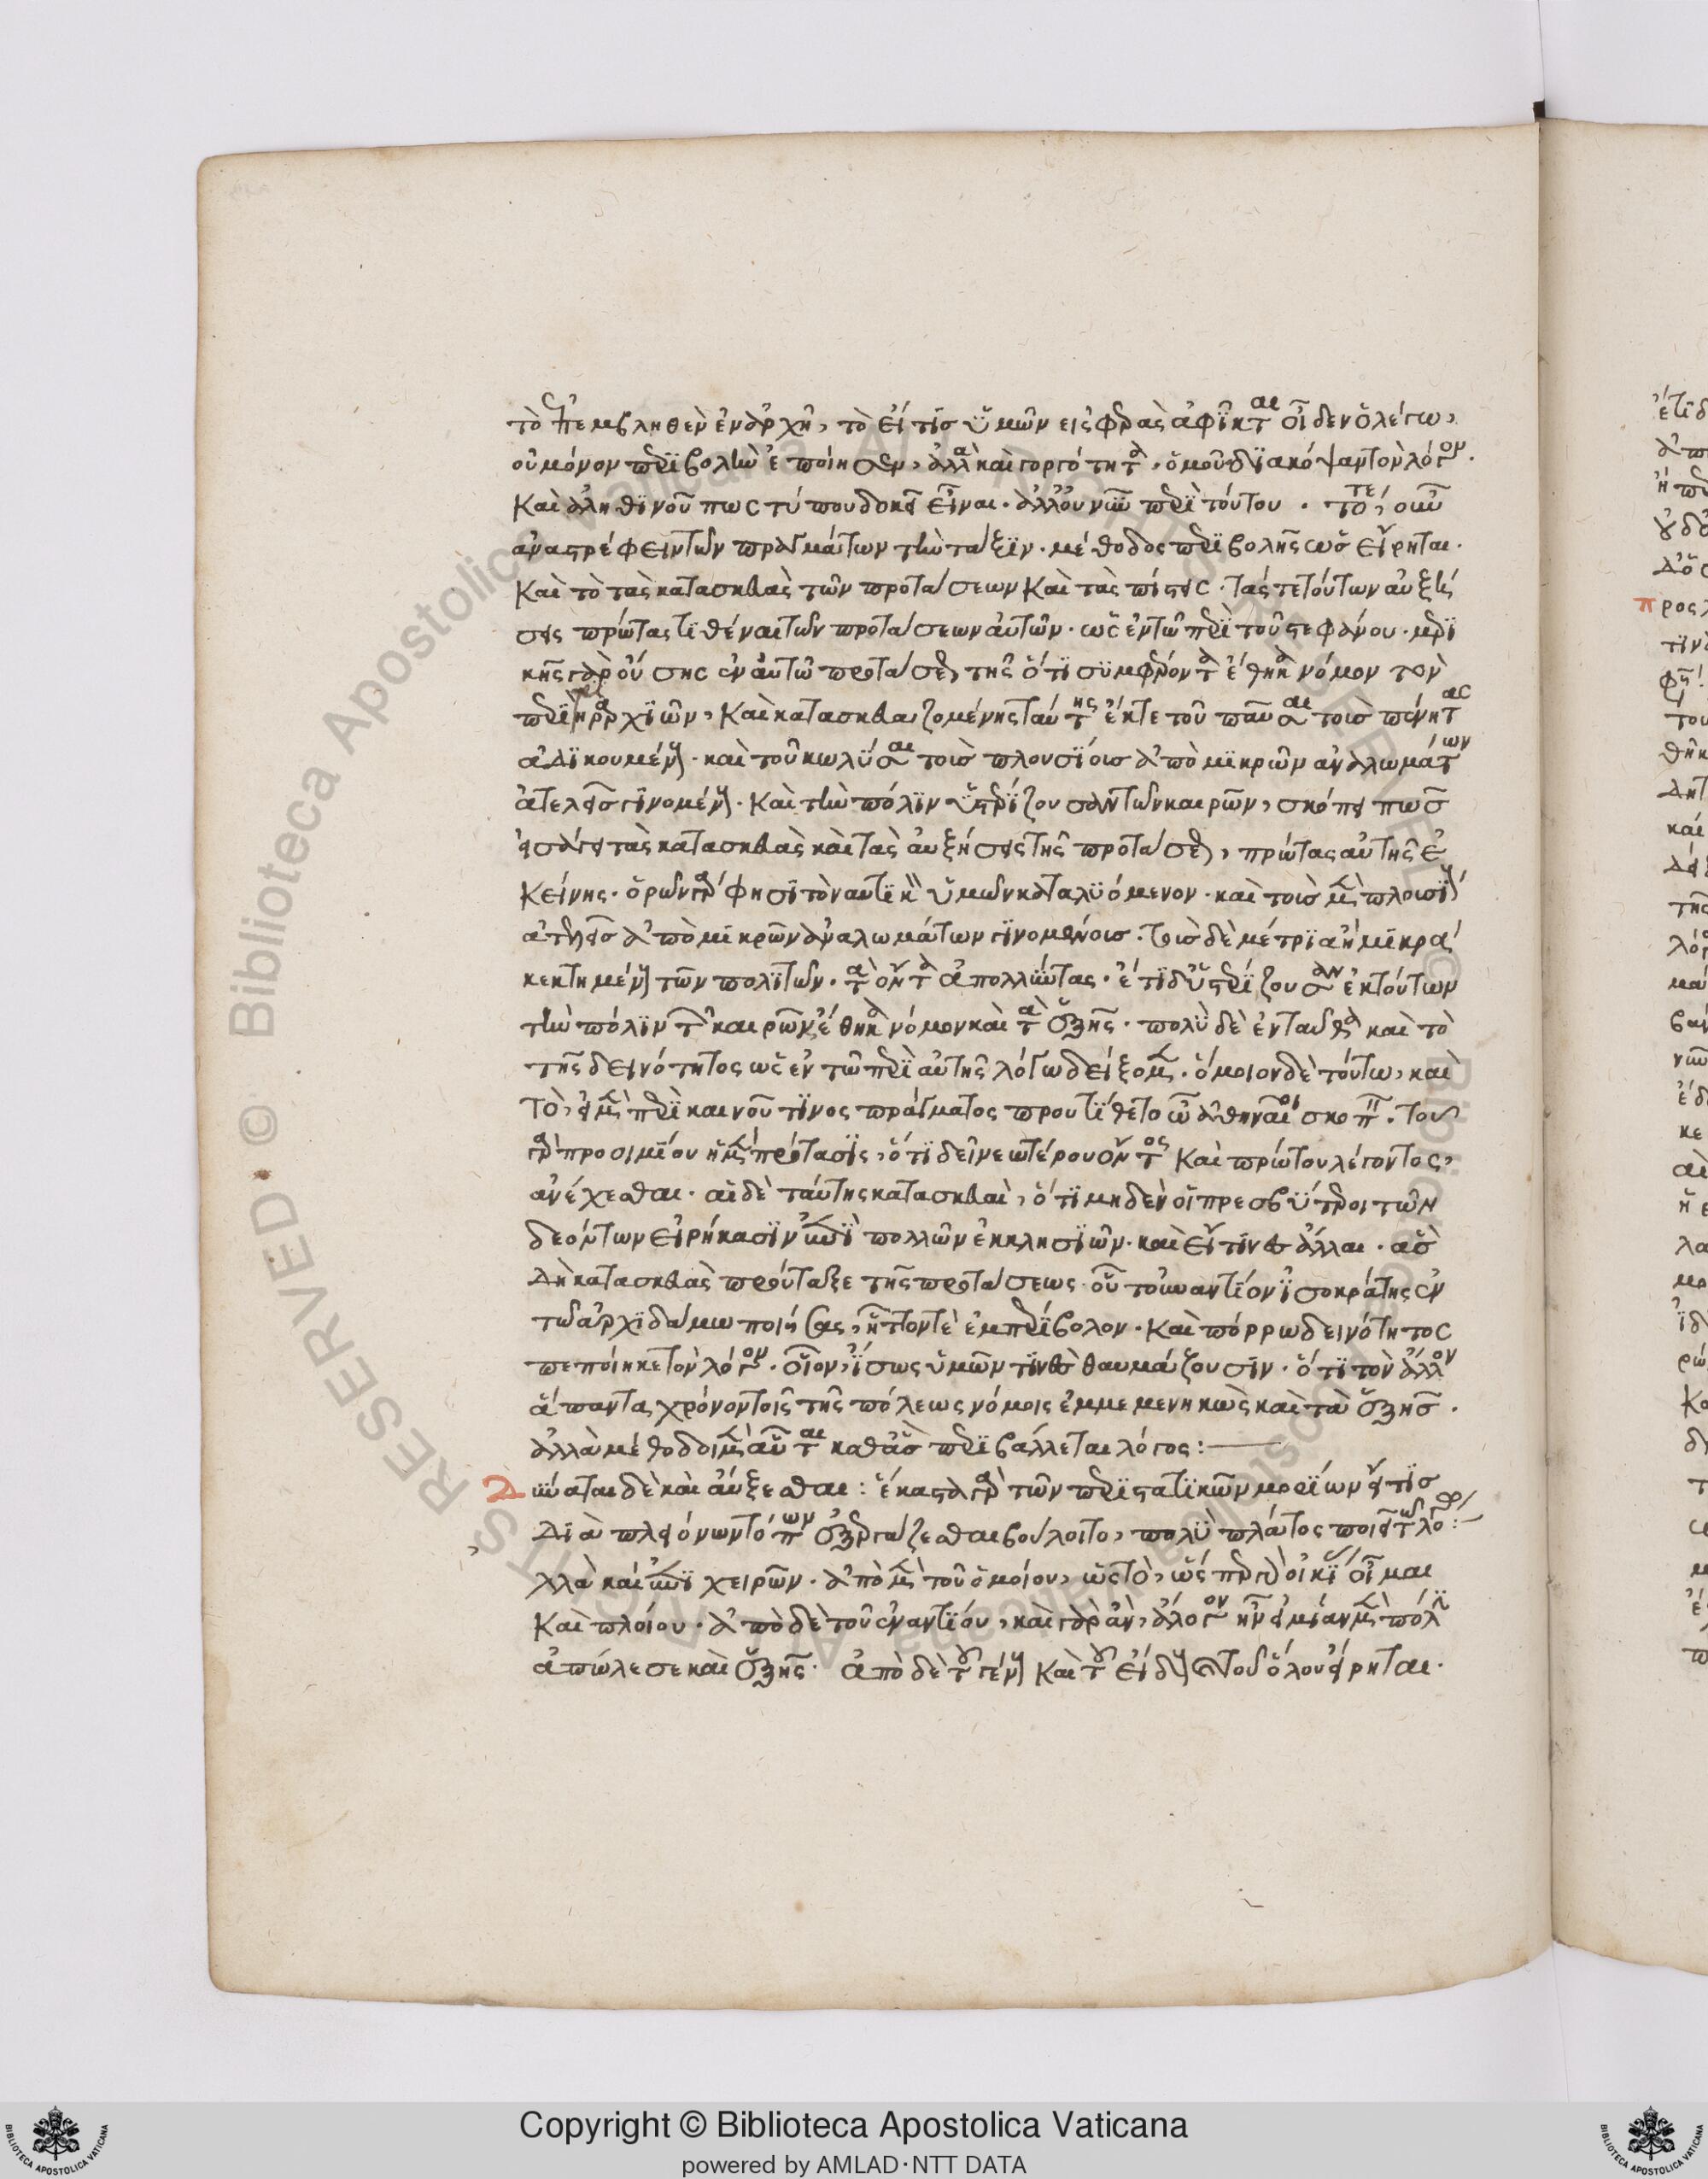 τὸ παρεμβληθὲν ἐν ἀρχῇ, τὸ εἴ τις ὑμῶν εἰς φρέατα ἀφίκται οἶδεν ὃ λέγω,
οὐ μόνον περιβολὴν ἐποίησεν, ἀλλὰ καὶ γοργότητα, ὁμοῦ διακόψαν τὸν λόγον.
Καὶ ἀληθινοῦ πως τύπου δοκεῖ εἶναι. ἀλλ' οὐ νῦν περὶ τούτου. τό τε, οὖν
ἀναστρέφειν τῶν πραγμάτων τὴν τάξιν. μέθοδος περιβολῆς ὡς εἴρηται.
Καὶ τὸ τὰς κατασκευὰς τῶν προτάσεων Καὶ τὰς πίστεις. τάς τε τούτων αὐξή
σεις πρώτας τιθέναι τῶν προτάσεων αὐτῶν. ὡς ἐν τῷ περὶ τοῦ στεφάνου. μερι
κῆς γὰρ οὔσης ἐν αὐτῷ προτάσεως τῆς ὅτι συμφέροντα ἔθηκα νόμον τὸν
περὶ τριηραρχιῶν, Καὶ κατασκευαζομένης ταύτης ἔκ τε τοῦ παῦσαι τοὺς πένητας
ἀδικουμένους. καὶ τοῦ κωλῦσαι τοὺς πλουσίους ἀπὸ μικρῶν ἀναλωμάτων
ἀτελεῖς γινομένους. Καὶ τὴν πόλιν ὑστερίζουσαν τῶν καιρῶν, σκόπει πῶς
εἰσάγει τὰς κατασκευὰς καὶ τὰς αὐξήσεις τῆς προτάσεως, πρώτας αὐτῆς ἐ
Κείνης. ὁρῶν γάρ φησι τὸ ναυτικὸν ὑμῶν καταλυόμενον. καὶ τοὺς μὲν πλουσίους
ἀτελεῖς ἀπὸ μικρῶν ἀναλωμάτων γινομένους. τοὺς δὲ μέτρια ἢ μικρὰ
κεκτημένους τῶν πολιτῶν. τὰ ὄντα ἀπολλύντας. ἔτι δ' ὑστερίζουσαν ἐκ τούτων
τὴν πόλιν τῶν καιρῶν, ἔθηκα νόμον καὶ τὰ ἑξῆς. πολὺ δὲ ἐνταῦθα καὶ τὸ
τῆς δεινότητος ὡς ἐν τῷ περὶ αὐτῆς λόγῳ δείξομεν. ὅμοιον δὲ τούτῳ, καὶ
τό, εἰ μὲν περὶ καινοῦ τινος πράγματος προυτίθετο ὦ ἀθηναῖοι σκοπεῖν. τοῦ
γὰρ προοιμίου ἡ μὲν πρότασις, ὅτι δεῖ νεωτέρου ὄντος Καὶ πρώτου λέγοντος,
ἀνέχεσθαι. αἱ δὲ ταύτης κατασκευαὶ, ὅτι μηδὲν οἱ πρεσβύτεροι τῶν
δεόντων εἰρήκασιν ἐπὶ πολλῶν ἐκκλησιῶν. καὶ εἴ τινες ἄλλαι. ἃς
δὴ κατασκευὰς προύταξε τῆς προτάσεως. οὗ τοὐναντίον ἰσοκράτης ἐν
τῷ ἀρχιδάμῳ ποιήσας, ἧττόν τε ἐμπερίβολον. Καὶ πόρρω δεινότητος
πεποίηκε τὸν λόγον. οἷον, ἴσως ὑμῶν τινὲς θαυμάζουσιν. ὅτι τὸν ἄλλον
ἅπαντα χρόνον τοῖς τῆς πόλεως νόμοις ἐμμεμενηκὼς καὶ τὰ ἑξῆς.
ἀλλὰ μέθοδοι μὲν αὗται καθ' ἃς περιβάλλεται λόγος:
Δύναται δὲ καὶ αὔξεσθαι: ἕκαστα γὰρ τῶν περιστατικῶν μορίων εἴ τις
διὰ πλειόνων τόπων ἐξεργάζεσθαι βούλοιτο, πολὺ πλάτος ποιεῖ τῷ λόγῳ:
λλὰ καὶ ἐπιχειρῶν. ἀπὸ μὲν τοῦ ὁμοίου, ὡς τὸ, ὥσπερ γὰρ οἰκίας οἶμαι
Καὶ πλοίου. ἀπὸ δὲ τοῦ ἐναντίου, καὶ γὰρ ἂν, ἄλογον ἦν εἰ μίαν μὲν πόλιν
ἀπώλεσε καὶ ἑξῆς. ἀπὸ δὲ τοῦ γένους Καὶ τοῦ εἴδους τοῦ ὅλου εἴρηται.
Copyright © Biblioteca Apostolica Vaticana
powered by AMLAD·NTT DATA